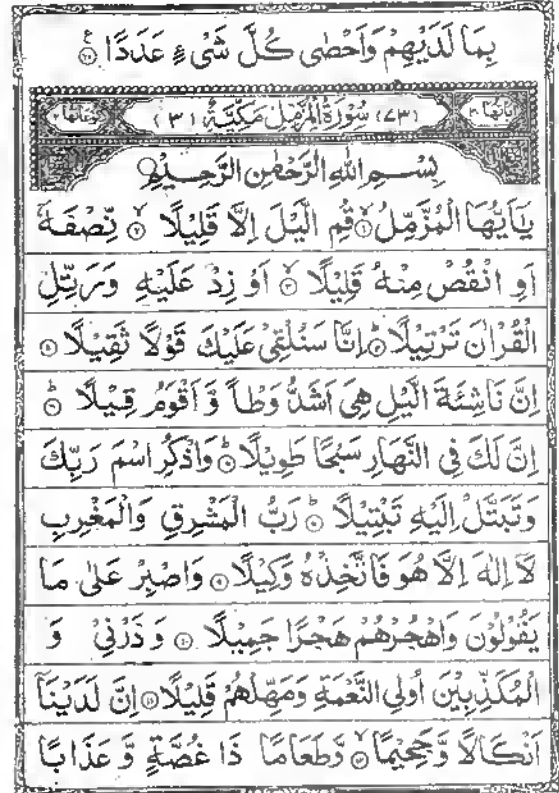 بِمَا لَدَيْهِمْ وَاَحْصٰى كُلَّ شَىْءٍ عَدَدًا ۝٢٨
اٰيَاتُهَا ٢٠ ﴿٧٣﴾ سُوْرَةُ الْمُزَّمِّلِ مَكِّيَّةٌ ﴿٣﴾ رُكُوْعَاتُهَا ٢
بِسْمِ اللهِ الرَّحْمٰنِ الرَّحِيْمِ
يٰٓاَيُّهَا الْمُزَّمِّلُ ۝١ قُمِ الَّيْلَ اِلَّا قَلِيْلًا ۝٢ نِّصْفَهٗٓ
اَوِ انْقُصْ مِنْهُ قَلِيْلًا ۝٣ اَوْ زِدْ عَلَيْهِ وَرَتِّلِ
الْقُرْاٰنَ تَرْتِيْلًا ۝٤ اِنَّا سَنُلْقِىْ عَلَيْكَ قَوْلًا ثَقِيْلًا ۝٥
اِنَّ نَاشِئَةَ الَّيْلِ هِىَ اَشَدُّ وَطْاً وَّ اَقْوَمُ قِيْلًا ۝٦
اِنَّ لَكَ فِى النَّهَارِ سَبْحًا طَوِيْلًا ۝٧ وَاذْكُرِ اسْمَ رَبِّكَ
وَتَبَتَّلْ اِلَيْهِ تَبْتِيْلًا ۝٨ رَبُّ الْمَشْرِقِ وَالْمَغْرِبِ
لَآ اِلٰهَ اِلَّا هُوَ فَاتَّخِذْهُ وَكِيْلًا ۝٩ وَاصْبِرْ عَلٰى مَا
يَقُوْلُوْنَ وَاهْجُرْهُمْ هَجْرًا جَمِيْلًا ۝١٠ وَ ذَرْنِىْ وَ
الْمُكَذِّبِيْنَ اُولِى النَّعْمَةِ وَمَهِّلْهُمْ قَلِيْلًا ۝١١ اِنَّ لَدَيْنَآ
اَنْكَالًا وَّ جَحِيْمًا ۝١٢ وَّطَعَامًا ذَا غُصَّةٍ وَّ عَذَابًا